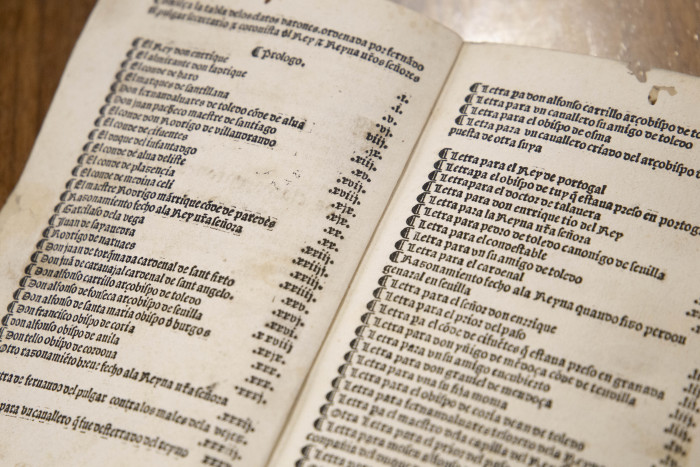 la tabla delos claros varones. ordenada por fernãdo
pulgar secretario & coronista ðl Rey & Reyna nr̃os señores
¶ Prologo.
¶ El Rey don enrrique .j.
¶ El almirante don fadrique .v.
¶ El conde de haro .vj.
¶ El marques de santillana viij.
¶ Don fernandaluares de toledo cõde de alua
¶ Don juan pacheco maestre de santiago
¶ El conde don Rodrigo de villandrando
¶ El conde de cifuentes .xvij.
¶ El duque del infantadgo
¶ El conde de alua deliste
¶ El conde de plasencia
¶ El conde de medina celi .xx.
¶ El maestre Rodrigo mãrrique cõde de paredes
¶ Rasonamiento fecho ala Reyna nr̃a señora
¶ Garcilaso dela vega
¶ Juan de sayauedra
¶ Rodrigo de naruaes
¶ Don juan de torq̃mada cardenal de sant sixto
¶ Don juã de carauajal cardenal de sant angelo.
¶ Don alfonso carrillo arçobispo de toledo .xxv.
¶ Don alfonso de fonseca arçobispo de seuilla .xxvj.
¶ Don alfonso de santa maria obispo ð burgos
¶ Don francisco obispo de coria
¶ Don alfonso obispo de auila .xxx.
¶ Don tello obispo de cordoua
Otro rasonamiẽto breue fecho ala Reyna nr̃a señora
letra de fernando del pulgar contra los males dela vejez.
para vn cauallero q̃ fue desterrado del reyno
¶ Letra pa don alfonso carrillo arçobispo de
¶ Letra para vn cauallero su amigo de toledo
¶ Letra para el obispo de osma
¶ Letra para vn cauallero criado del arçobispo
puesta de otra suya
¶ Letra para el Rey de portogal
¶ Letra pa el obispo de tuy q̃ estaua preso en
¶ Letra para el doctor de talauera
¶ Letra para don enrrique tio del Rey
¶ Letra para la Reyna nr̃a señora
¶ Letra para pedro de toledo canonigo de seuilla
¶ Letra para el condestable
¶ Letra para vn su amigo de toledo
¶ Letra para el cardenal
¶ Rasonamiento fecho ala Reyna quando fiso perdon
general en seuilla
¶ Letra para el señor don enrrique
¶ Letra para el prior del paso
¶ Letra pa el cõde de cifuẽtes q̃ estaua preso en granada
¶ Letra para don yñigo de mẽdoça cõde de tendilla
¶ Letra para vn su amigo encubierto
¶ Letra para don grauiel de mendoça
¶ Letra para vna su fija monia
¶ Letra para el obispo de coria dean de toledo
¶ Letra para fernandaluares secretario dela Reyna
¶ Letra pa el maestro dela capilla del Rey
Otra Letra para el prior del paso